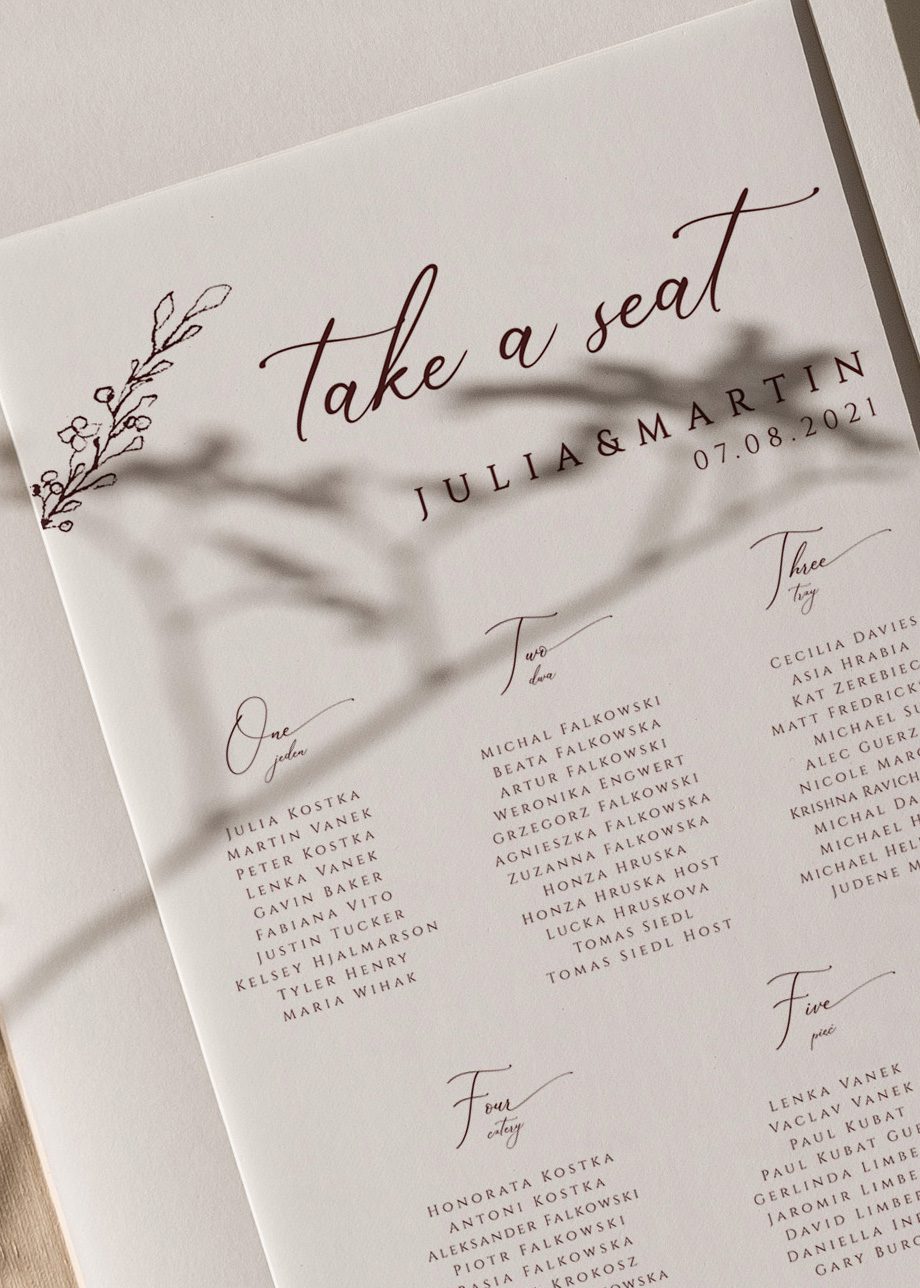 take a seat
JULIA&MARTIN
07.08.2021
One
jeden
JULIA KOSTKA
MARTIN VANEK
PETER KOSTKA
LENKA VANEK
GAVIN BAKER
FABIANA VITO
JUSTIN TUCKER
KELSEY HJALMARSON
TYLER HENRY
MARIA WIHAK
Two
dwa
MICHAL FALKOWSKI
BEATA FALKOWSKA
ARTUR FALKOWSKI
WERONIKA ENGWERT
GRZEGORZ FALKOWSKI
AGNIESZKA FALKOWSKA
ZUZANNA FALKOWSKA
HONZA HRUSKA
HONZA HRUSKA HOST
LUCKA HRUSKOVA
TOMAS SIEDL
TOMAS SIEDL HOST
Three
trzy
CECILIA DAVIES
ASIA HRABIA
KAT
MATT
MICHAEL
ALEC
NICOLE
KRISHNA
MICHAL
MICHAEL
MICHAEL
JUDENE
Four
cztery
HONORATA KOSTKA
ANTONI KOSTKA
ALEKSANDER FALKOWSKI
PIOTR FALKOWSKI
BASIA FALKOWSKA
KROKOSZ
Five
pięć
LENKA VANEK
VACLAV VANEK
PAUL KUBAT
PAUL KUBAT
GERLINDA
JAROMIR
DAVID
DANIELLA
GARY